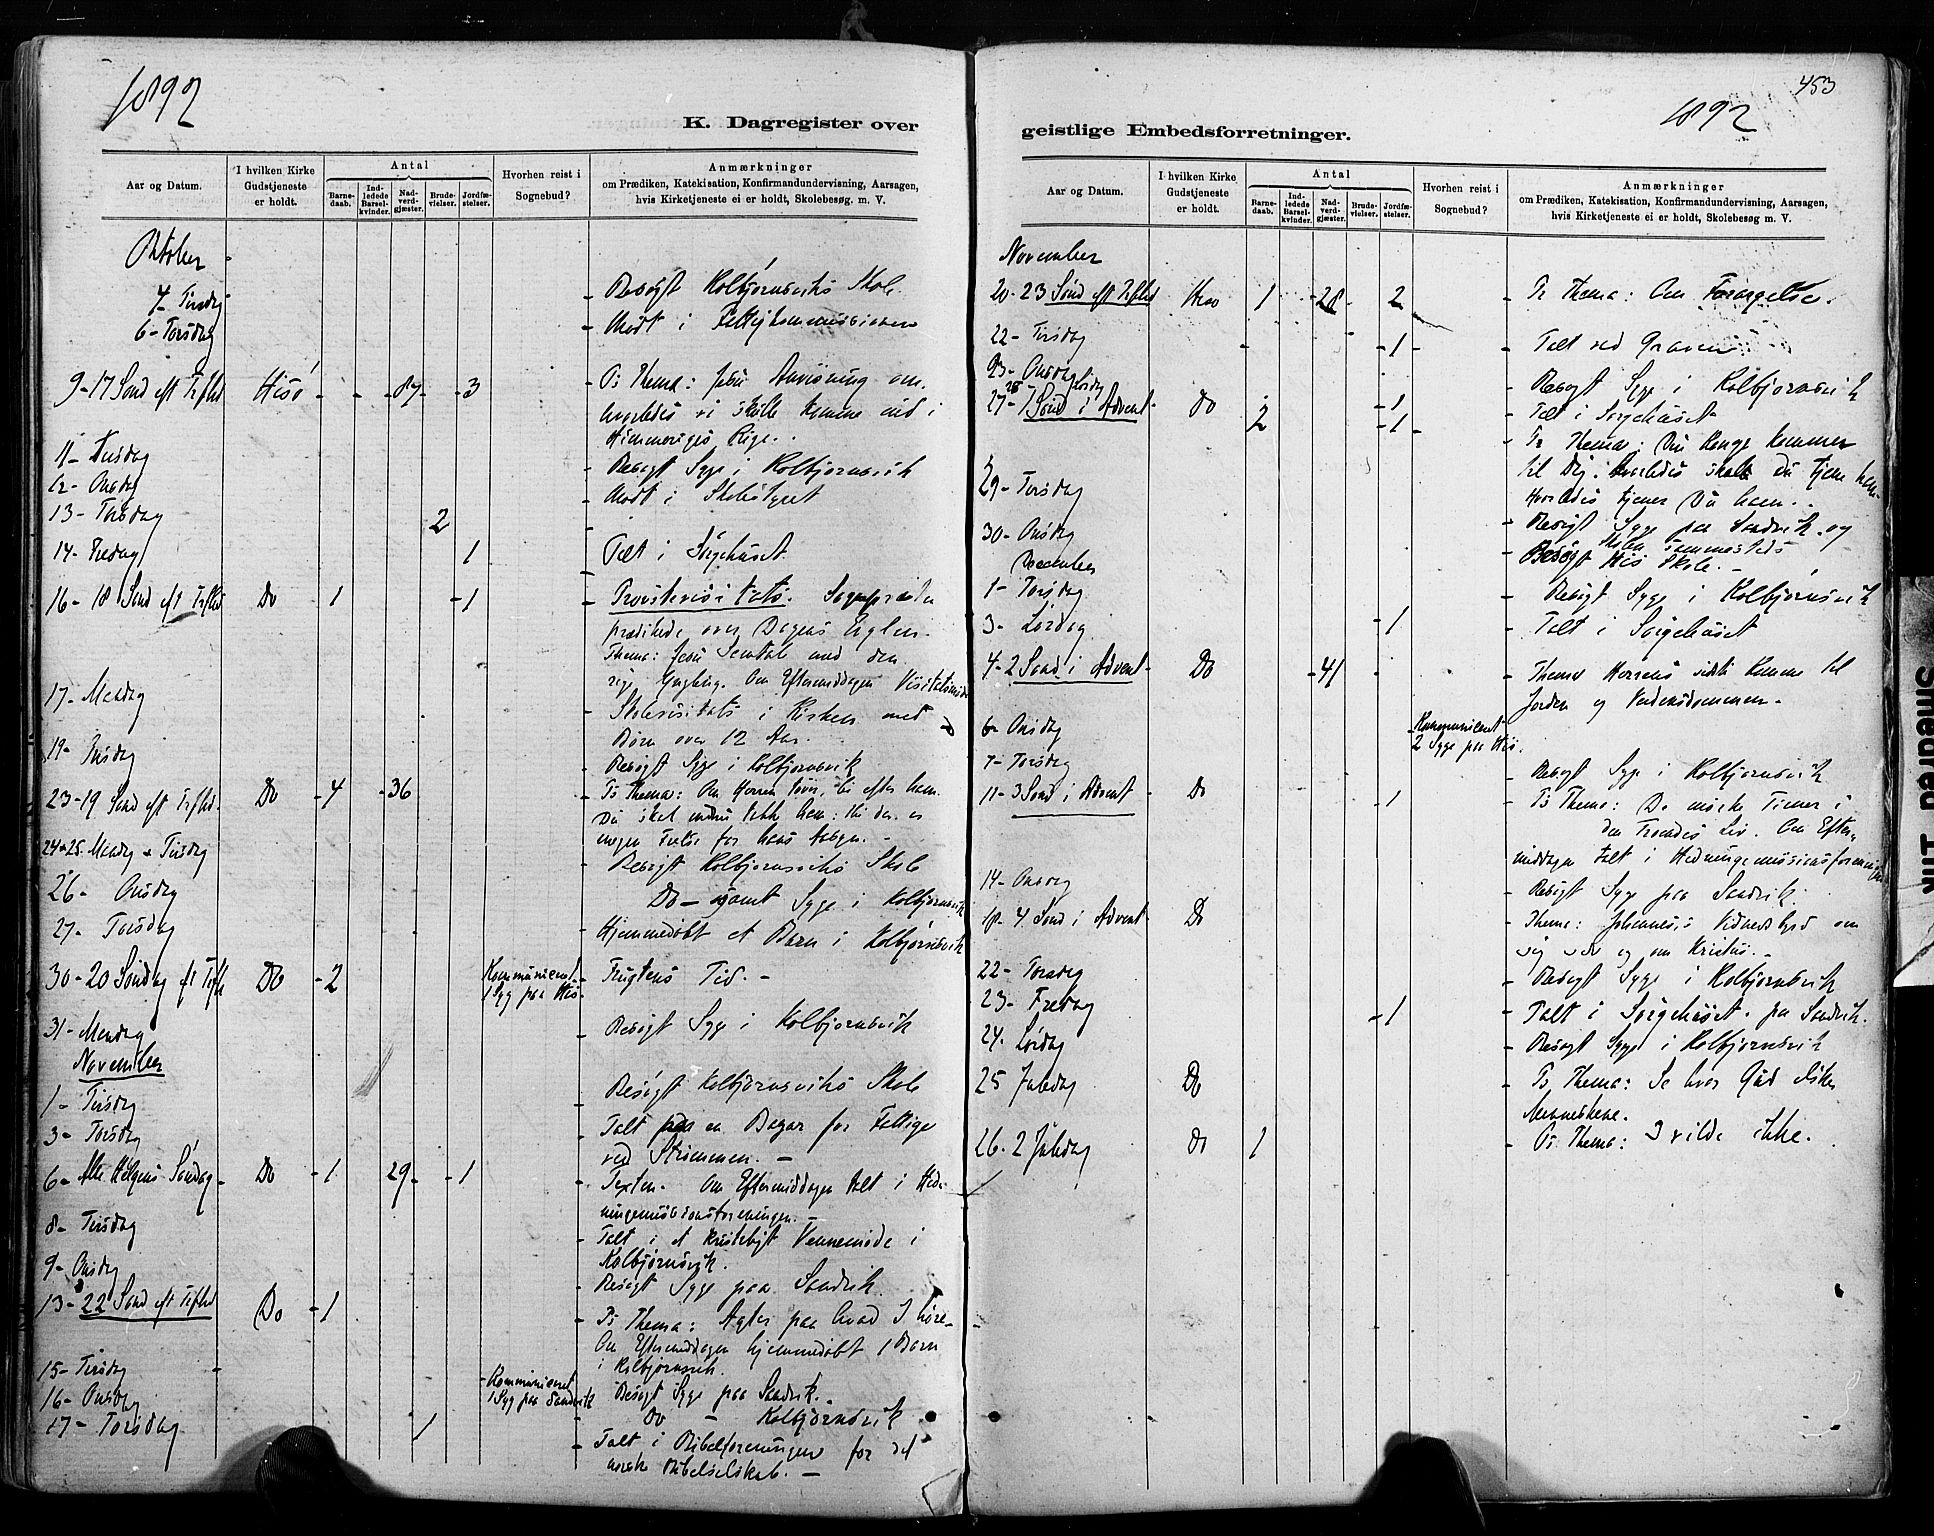 1892
K. Dagregister over
Aar og Datum.
I hvilken Kirke Gudstjeneste er holdt.
Antal
Barne-daab.
Ind-ledede Barsel-kvinder.
Nad-verd-gjæster.
Brude-vielser.
Jordfæ-stelser.
Hvorhen reist i Sognebud?
Anmærkninger
om Prædiken, Katekisation, Konfirmandundervisning, Aarsagen,
hvis Kirketjeneste ei er holdt, Skolebesøg. m. V.
Oktober
4 - Tirsdag - Besøgt Kolbjørnsviks Skole.
6 - Torsdag - Mødt i Fattigkommissionen
9 - 17 Sønd eft Trftid Hisø - - 87 - 3 - Pr Thema: Jesu Anvisning om
hvorledes vi skulle komme ind i
Himmeriges Rige.
11 - Tirsdag - Besøgt Syge i Kolbjørnsvik
12 - Onsdag - Mødt i Skolestyret
13 - Torsdag 2
14 - Fredag 1 - Talt i Sørgehuset
16 - 18 Sønd eft Trftid Do - 1 - 1 - Provstevisitats. Sognepræsten
prædikede over Dagens Evglm.
Thema: Jesu Samtale med den
rige Yngling. Om Eftermiddagen Visitats
17 - Mandag Skolevisitats i Kirken med
Børn over 12 Aar.
19 - Onsdag - Besøgt Syge i Kolbjørnsvik
23 - 19 Sønd eft Trftid - Do - 4 - 36 - Pr Thema: Om Herren tøver, bi efter ham.
Du skal
for hans
24 & 25. Mandag & Tirsdag - Besøgt Kolbjørnsviks Skole
26 - Onsdag Do - samt Syge i Kolbjørnsvik
27 - Torsdag - Hjemmedøbt et Barn i Kolbjørnsvik
30 - 20 Søndag eft Trft Do - 2 Kommuniceret 1 Syg paa Hisø - Frugtens Tid. -
31 - Mandag - Besøgt Syge i Kolbjørnsvik
November
1 - Tirsdag - Besøgt Kolbjørnsviks Skole
3 - Torsdag - Talt paa en Bazar for Fattige
ved Strømmen. -
6 - Alle Helgens Søndag - Do - 1 29 - - 1 - Texten. Om Eftermiddagen talt i Hed-
ningemissionsforeningen. -
8 - Tirsdag - Talt i et Kristeligt Vennemøde i
Kolbjørnsvik.
9 - Onsdag - Besøgt Syge paa Sandvik.
13 - 22 Sønd eft Trftid Do - 1 - Pr Thema: Agter paa hvad I høre -
Om Eftermiddagen hjemmedøbt 1 Barn
i Kolbjørnsvik.
15 - Tirsdag - - Kommuniceret 1 Syg paa Sandvik - Besøgt Syge paa Sandvik.
16 - Onsdag - Do - Kolbjørnsvik
17 - Torsdag 1 - Talt i Bibelforeningen for det
norske Bibelselskab. -
453
1892
geistlige Embedsforretninger.
Aar og Datum.
I hvilken Kirke Gudstjeneste er holdt.
Antal
Barne-daab.
Ind-ledede Barsel-kvinder.
Nad-verd-gjæster.
Brude-vielser.
Jordfæ-stelser.
Hvorhen reist i Sognebud?
Anmærkninger
om Prædiken, Katekisation, Konfirmandundervisning, Aarsagen,
hvis Kirketjeneste ei er holdt, Skolebesøg m. V.
November
20 - 23 Sønd eft Trftid Hisø 1 - 28 - 2 - Pr Thema: Om Forargelse.
22 - Tirsdag - 1 - Talt ved Graven
23 - Onsdag - Besøgt Syge i Kolbjørnsvik
26 Lørdag - 1 - Talt i Sørgehuset
27 - 1 Sønd i Advent - Do 2 - 1 - Pr Thema: Din Konge kommer
til Dig: hvorledes skal du tjene ham
Hvorledes tjener Du ham.
29 - Torsdag - Besøgt Syge paa Sandvik og
Skolen sammesteds
30 - Onsdag - Besøgt His Skole. -
December
1 - Torsdag - Besøgt Syge i Kolbjørnsvik
3 - Lørdag - 1 - Talt i Sørgehuset
4 - 2 Sønd i Advent - Do - 41 - - Thema Herrens sidste Komme til
Jorden og Verdensdommen -
6 - Onsdag Kommuniceret 2 Syge paa Hisø.
7 - Torsdag - Besøgt Syge i Kolbjørnsvik
11 - 3 Sønd i Advent - Do - 1 - Pr Thema: De mørke Timer i
den Troendes Liv. Om Efter-
middagen talt i Hedningemissionsforeningen
14 - Onsdag - Besøgt Syge paa Sandvik.
18 - 4 Sønd i Advent - Do - Thema: Johannes's Vidnesbyrd om
sig selv og om Kristus. -
22 - Torsdag - Besøgt Syge i Kolbjørnsvik
23 - Fredag - 1 - Talt i Sørgehuset paa Sandvik.
24. Lørdag - Besøgt Syge i Kolbjørnsvik
25 Juledag Do - Pr Thema: Se hvor Gud elsker
Menneskene.
26. 2 Juledag Do 1 - Pr. Thema: I vilde ikke.